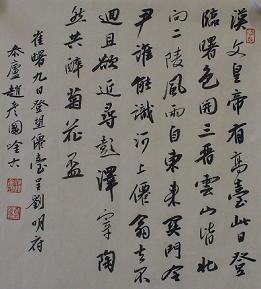 漢文皇帝有高臺此日登
臨曙色開三晉雲山皆北
向二陵風雨自東來関門令
尹誰能識河上僊翁去不
迴且欲近尋彭澤宰陶
然共醉菊花盃
崔曙九日登望僊臺呈劉明府
泰廬趙彥國